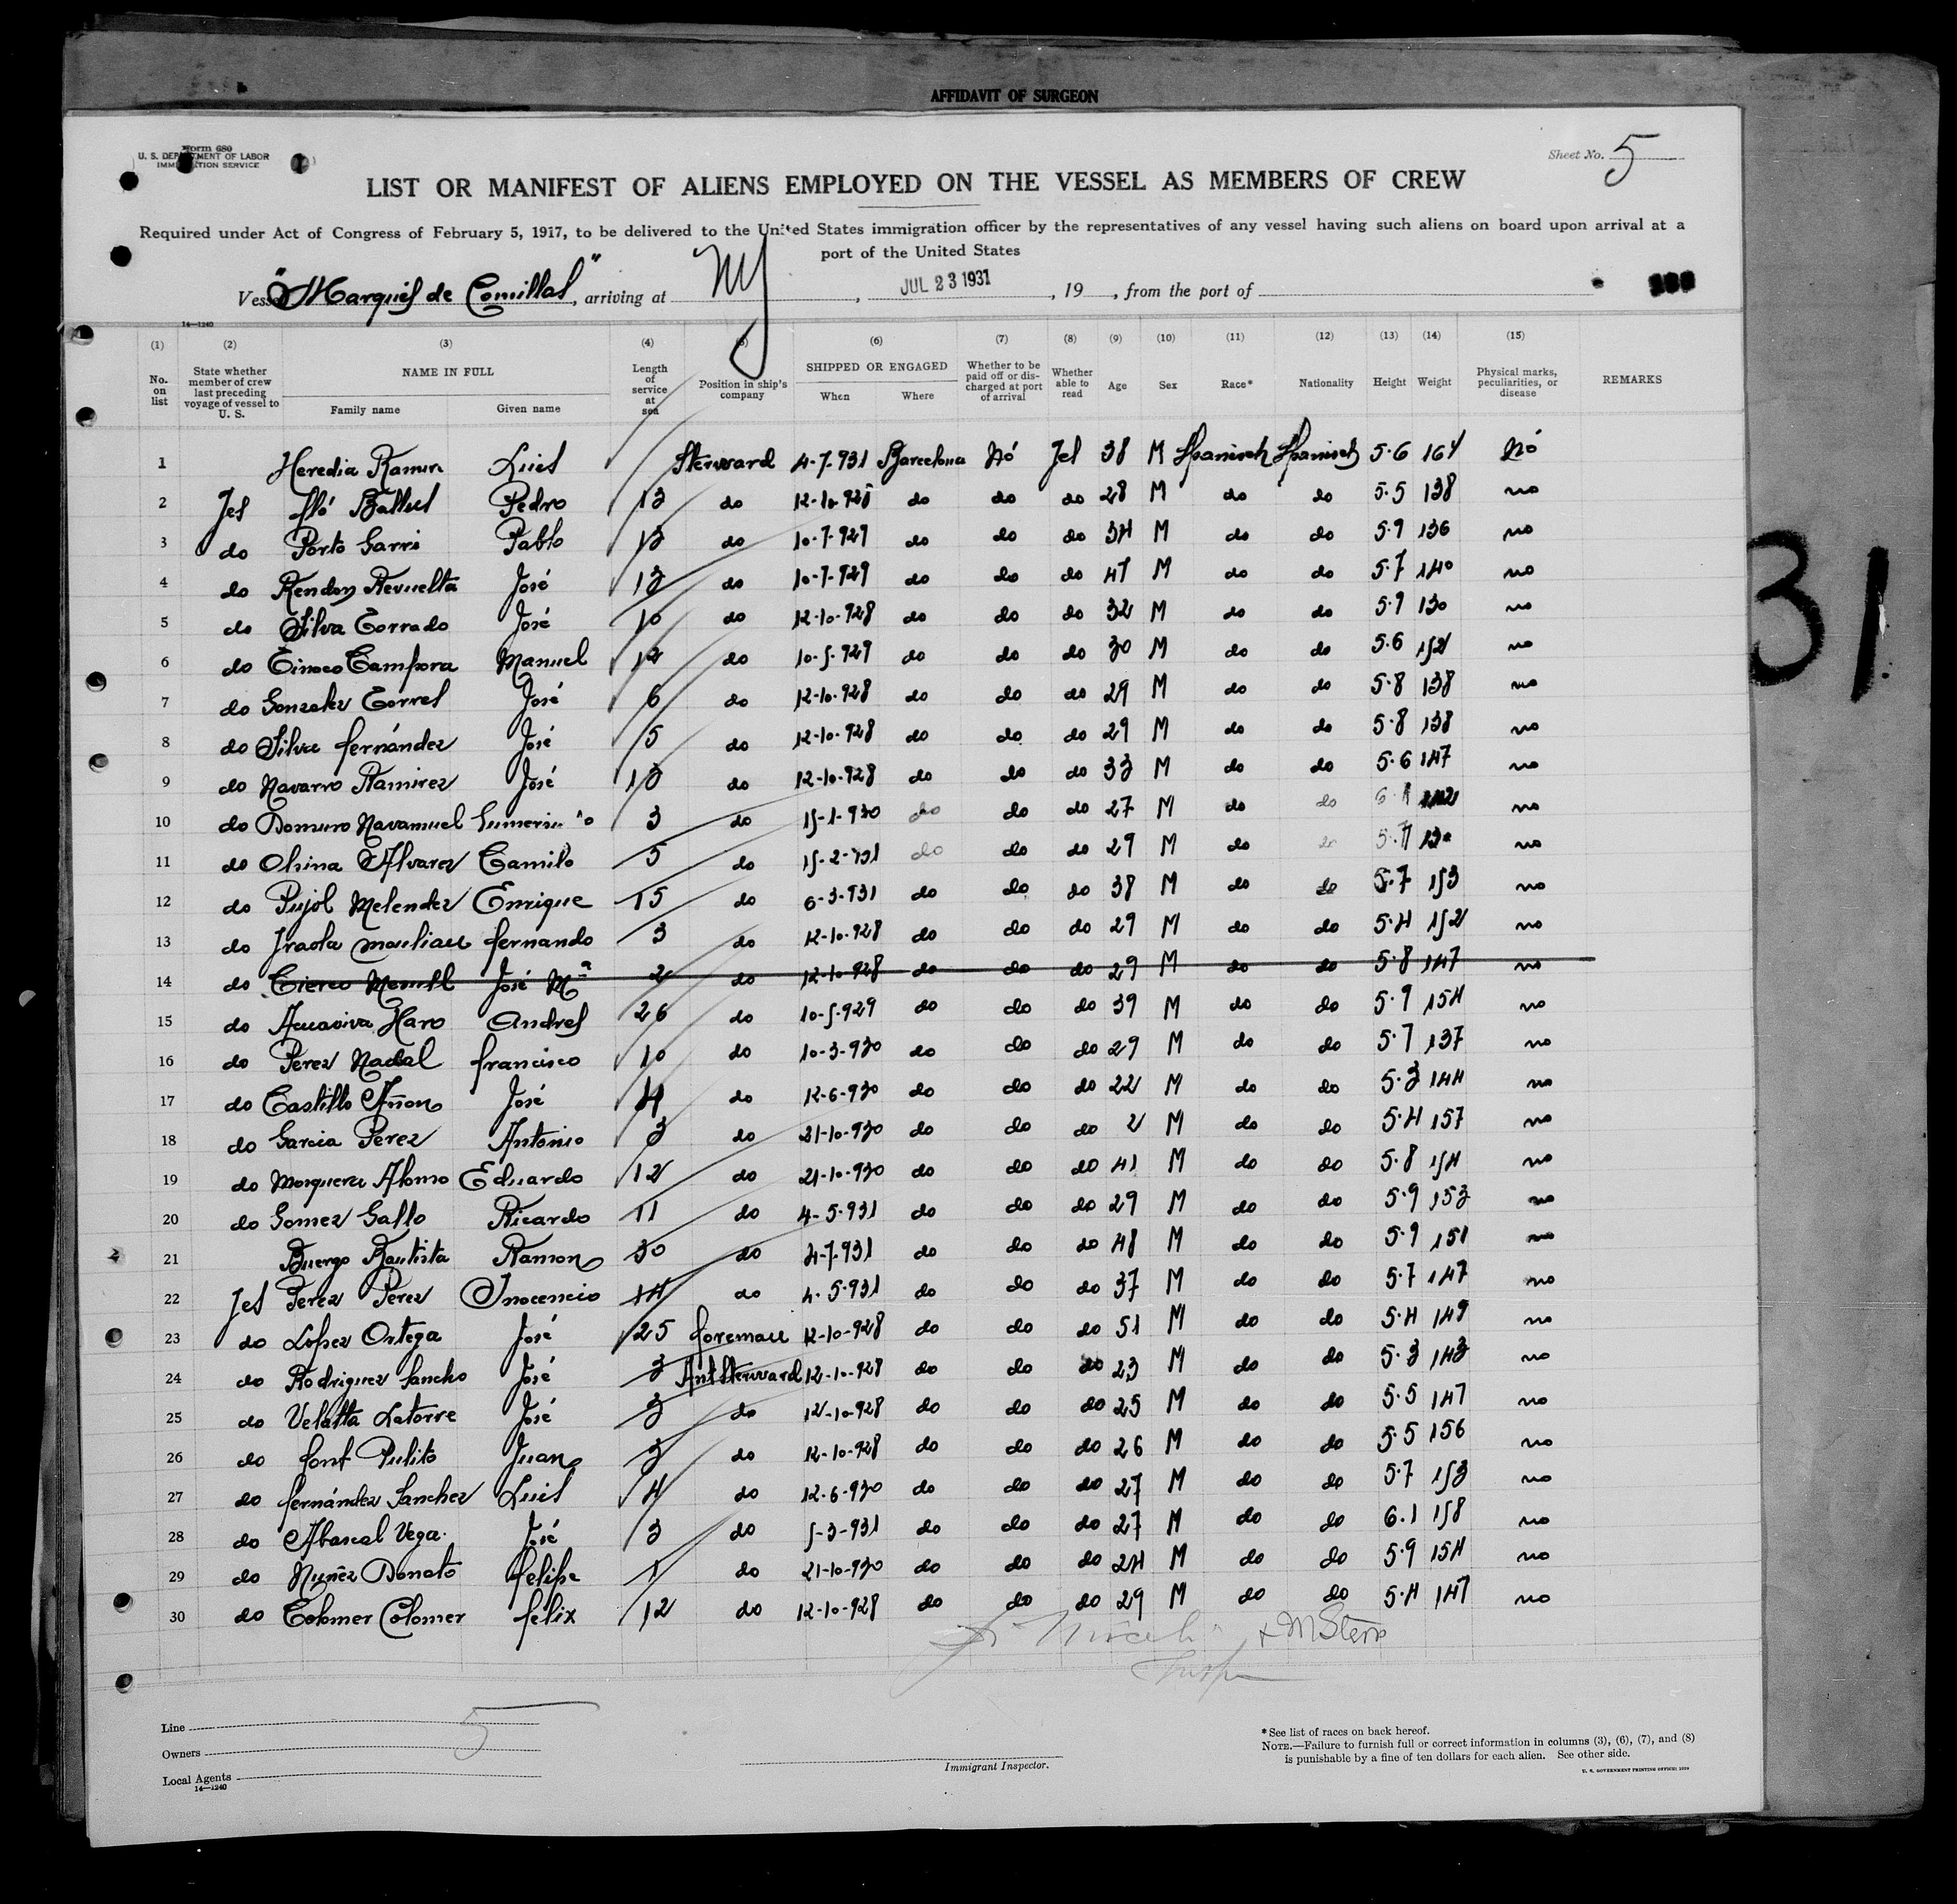 AFFIDAVIT OF SURGEON
Form 680
U. S. DEPARTMENT OF LABOR
IMMIGRATION SERVICE
Sheet No. 5
LIST OR MANIFEST OF ALIENS EMPLOYED ON THE VESSEL AS MEMBERS OF CREW
Required under Act of Congress of February 5, 1917, to be delivered to the United States immigration officer by the representatives of any vessel having such aliens on board upon arrival at a
port of the United States
Vessel "Marqués de Comillas", arriving at NY, JUL 23 1931, 19 , from the port of
14—1240
(1) (2) (3) (4) (5) (6) (7) (8) (9) (10) (11) (12) (13) (14) (15)
No. on list State whether member of crew last preceding voyage of vessel to U. S. NAME IN FULL Family name Given name Length of service at sea Position in ship's company SHIPPED OR ENGAGED When Where Whether to be paid off or discharged at port of arrival Whether able to read Age Sex Race* Nationality Height Weight Physical marks, peculiarities, or disease REMARKS
1 Heredia Ramir Luis Sterward 4-7-931 Barcelona Nó Jes 38 M Spanisch Spanisch 5·6 164 Nó
2 Jes Pedro 13 do do do do 28 M do do 5·5 138 no
3 do Porto Garri Pablo 13 do 10-7-929 do do do 34 M do do 5·9 136 no
4 do Rendon Revuelta José 13 do 10-7-929 do do do 47 M do do 5·7 140 no
5 do Silva Corrado José 10 do 12-10-928 do do do 32 M do do 5·9 130 no
6 do Tinoco Campora Manuel 12 do 10-5-929 do do do 30 M do do 5·6 152 no
7 do Gonzalez Torres José 6 do 12-10-928 do do do 29 M do do 5·8 138 no
8 do Silva fernández José 5 do 12-10-928 do do do 29 M do do 5·8 138 no
9 do Navarro Ramirez José 13 do 12-10-928 do do do 33 M do do 5·6 147 no
10 do Navamuel 3 do 15-1-930 do do do 27 M do do no
11 do Alvarez Camilo 5 do 15-2-931 do do do 29 M do do 5·7 130 no
12 do Pujol Melendez Enrique 15 do 6-3-931 do do do 38 M do do 5·7 153 no
13 do Iraola fernando 3 do 12-10-928 do do do 29 M do do 5·4 152 no
14 do José Mª 2 do 12-10-928 do do do 29 M do do 5·8 147 no
15 do Acuaviva Haro Andres 26 do 10-5-929 do do do 39 M do do 5·9 154 no
16 do Perez Nadal francisco 10 do 10-3-930 do do do 29 M do do 5·7 137 no
17 do Castillo Añon José 4 do 12-6-930 do do do 22 M do do 5·3 144 no
18 do Garcia Perez Antonio 3 do 21-10-930 do do do 2 M do do 5·4 157 no
19 do Mosquera Alonso Eduardo 12 do 21-10-930 do do do 41 M do do 5·8 154 no
20 do Gomez Gallo Ricardo 11 do 4-5-931 do do do 29 M do do 5·9 153 no
21 Buergo Bautista Ramon 30 do 4-7-931 do do do 48 M do do 5·9 151 no
22 Jes Perez Perez Inocencio 14 do 4-5-931 do do do 37 M do do 5·7 147 no
23 do Lopez Ortega José 25 foreman 12-10-928 do do do 51 M do do 5·4 149 no
24 do Rodriguez Sancho José 3 Ant Sterward 12-10-928 do do do 23 M do do 5·3 143 no
25 do Velatta Latorre José 3 do 12-10-928 do do do 25 M do do 5·5 147 no
26 do font Pulito Juan 3 do 12-10-928 do do do 26 M do do 5·5 156 no
27 do fernández Sanchez Luis 4 do 12-6-930 do do do 27 M do do 5·7 153 no
28 do Abascal Vega José 3 do 5-3-931 do do do 27 M do do 6·1 158 no
29 do Nuñez Donato felipe 1 do 21-10-930 do do do 24 M do do 5·9 154 no
30 do Colomer Colomer felix 12 do 12-10-928 do do do 29 M do do 5·4 147 no
31
Line
5
Owners
Local Agents
14—1240
Immigrant Inspector.
*See list of races on back hereof.
NOTE.—Failure to furnish full or correct information in columns (3), (6), (7), and (8)
is punishable by a fine of ten dollars for each alien. See other side.